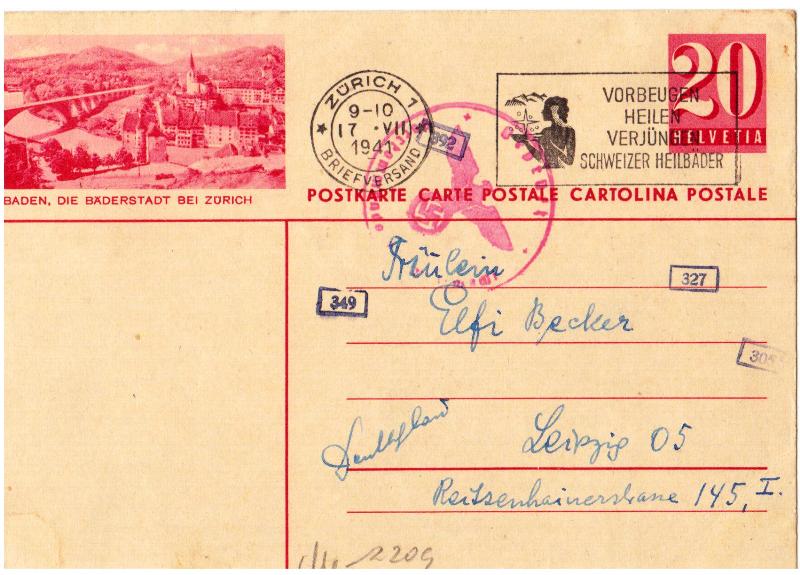 20
HELVETIA
ZÜRICH 1
9-10
17 · VII
1941
BRIEFVERSAND
VORBEUGEN
HEILEN
VERJÜNGEN
SCHWEIZER HEILBÄDER
892
Geprüft
BADEN, DIE BÄDERSTADT BEI ZÜRICH
POSTKARTE CARTE POSTALE CARTOLINA POSTALE
Fräulein
327
349
Elfi Becker
305
Deutschland
Leipzig O5
Reitzenhainerstrasse 145, I.
2209